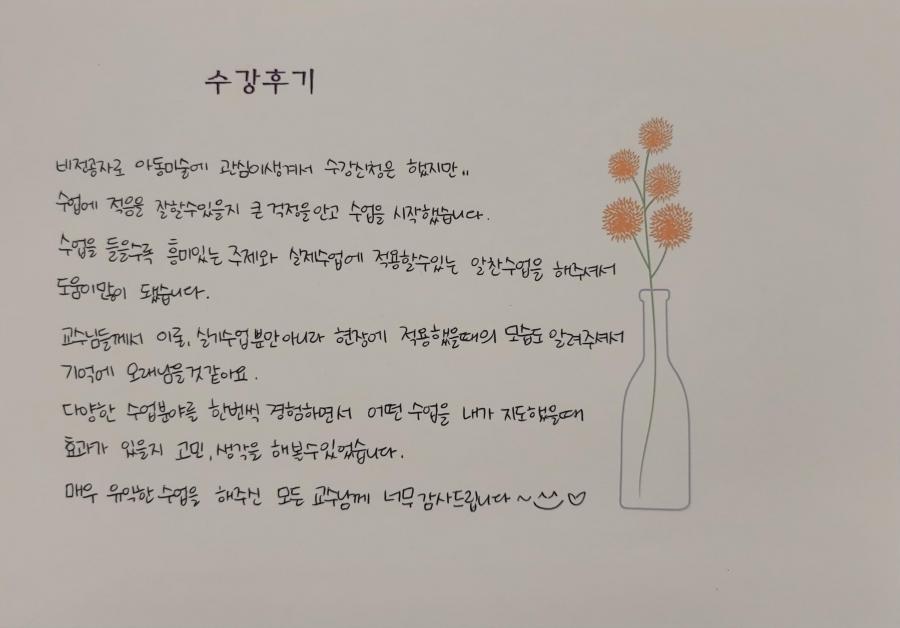 수강후기
비전공자로 아동미술에 관심이생겨서 수강신청은 했지만..
수업에 적응을 잘할수있을지 큰 걱정을안고 수업을 시작했습니다.
수업을 들을수록 흥미있는 주제와 실제수업에 적용할수있는 알찬수업을 해주셔서
도움이많이 됐습니다.
교수님들께서 이론, 실기수업뿐만아니라 현장에 적용했을때의 모습도 알려주셔서
기억에 오래남을것같아요.
다양한 수업분야를 한번씩 경험하면서 어떤 수업을 내가 지도했을때
효과가 있을지 고민, 생각을 해볼수있었습니다.
매우 유익한수업을 해주신 모든 교수님께 너무감사드립니다~^^♡